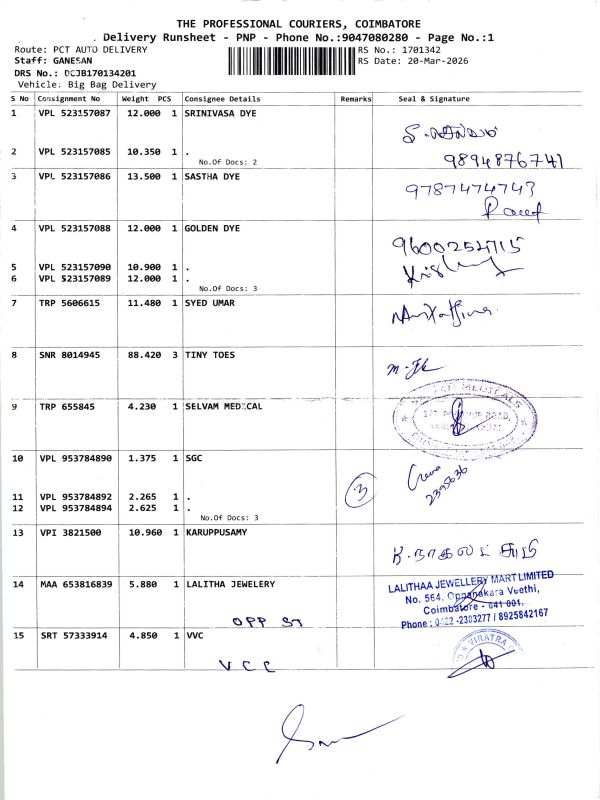 THE PROFESSIONAL COURIERS, COIMBATORE
Delivery Runsheet - PNP - Phone No.:9047080280 - Page No.:1
Route: PCT AUTO DELIVERY RS No.: 1701342
Staff: GANESAN RS Date: 20-Mar-2026
DRS No.: DCJB170134201
Vehicle: Big Bag Delivery
S No Consignment No Weight PCS Consignee Details Remarks Seal & Signature
1 VPL 523157087 12.000 1 SRINIVASA DYE
2 VPL 523157085 10.350 1 .
9894876741
No.Of Docs: 2
3 VPL 523157086 13.500 1 SASTHA DYE
9787474743
4 VPL 523157088 12.000 1 GOLDEN DYE
9600254715
5 VPL 523157090 10.900 1 .
6 VPL 523157089 12.000 1 .
No.Of Docs: 3
7 TRP 5606615 11.480 1 SYED UMAR
8 SNR 8014945 88.420 3 TINY TOES
9 TRP 655845 4.230 1 SELVAM MEDICAL
10 VPL 953784890 1.375 1 SGC
2395636
11 VPL 953784892 2.265 1 .
3
12 VPL 953784894 2.625 1 .
No.Of Docs: 3
13 VPI 3821500 10.960 1 KARUPPUSAMY
14 MAA 653816839 5.880 1 LALITHA JEWELERY
LALITHAA JEWELLERY MART LIMITED
No. 564, Oppanakara Veethi,
Coimbatore - 641 001.
Phone : 0422 -2303277 / 8925842167
OPP ST
15 SRT 57333914 4.850 1 VVC
VIRATRA
VCC